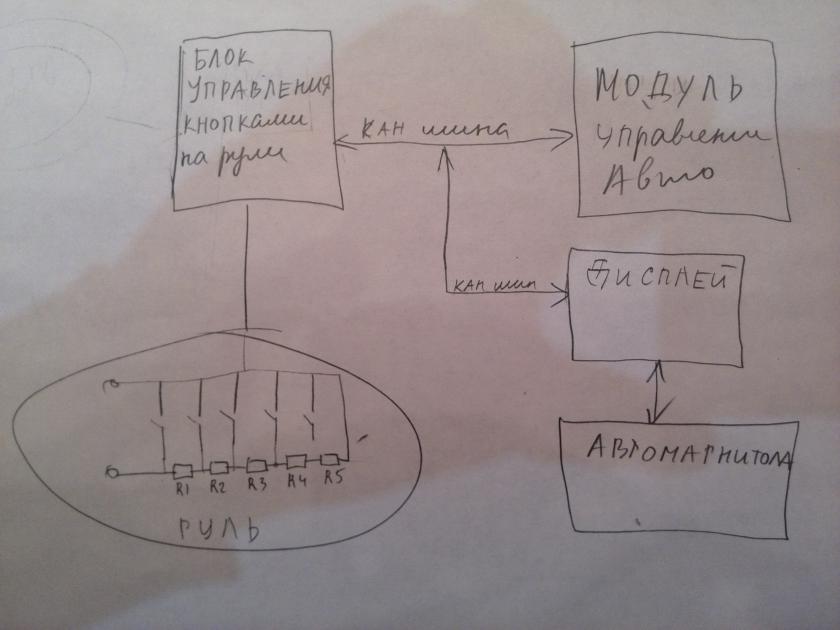 БЛОК
УПРАВЛЕНИЯ
кнопками
на рули
КАН шина
МОДУЛЬ
управлении
Авто
КАН шин
ДИСПЛЕЙ
АВТОМАГНИТОЛА
R1 R2 R3 R4 R5
РУЛЬ